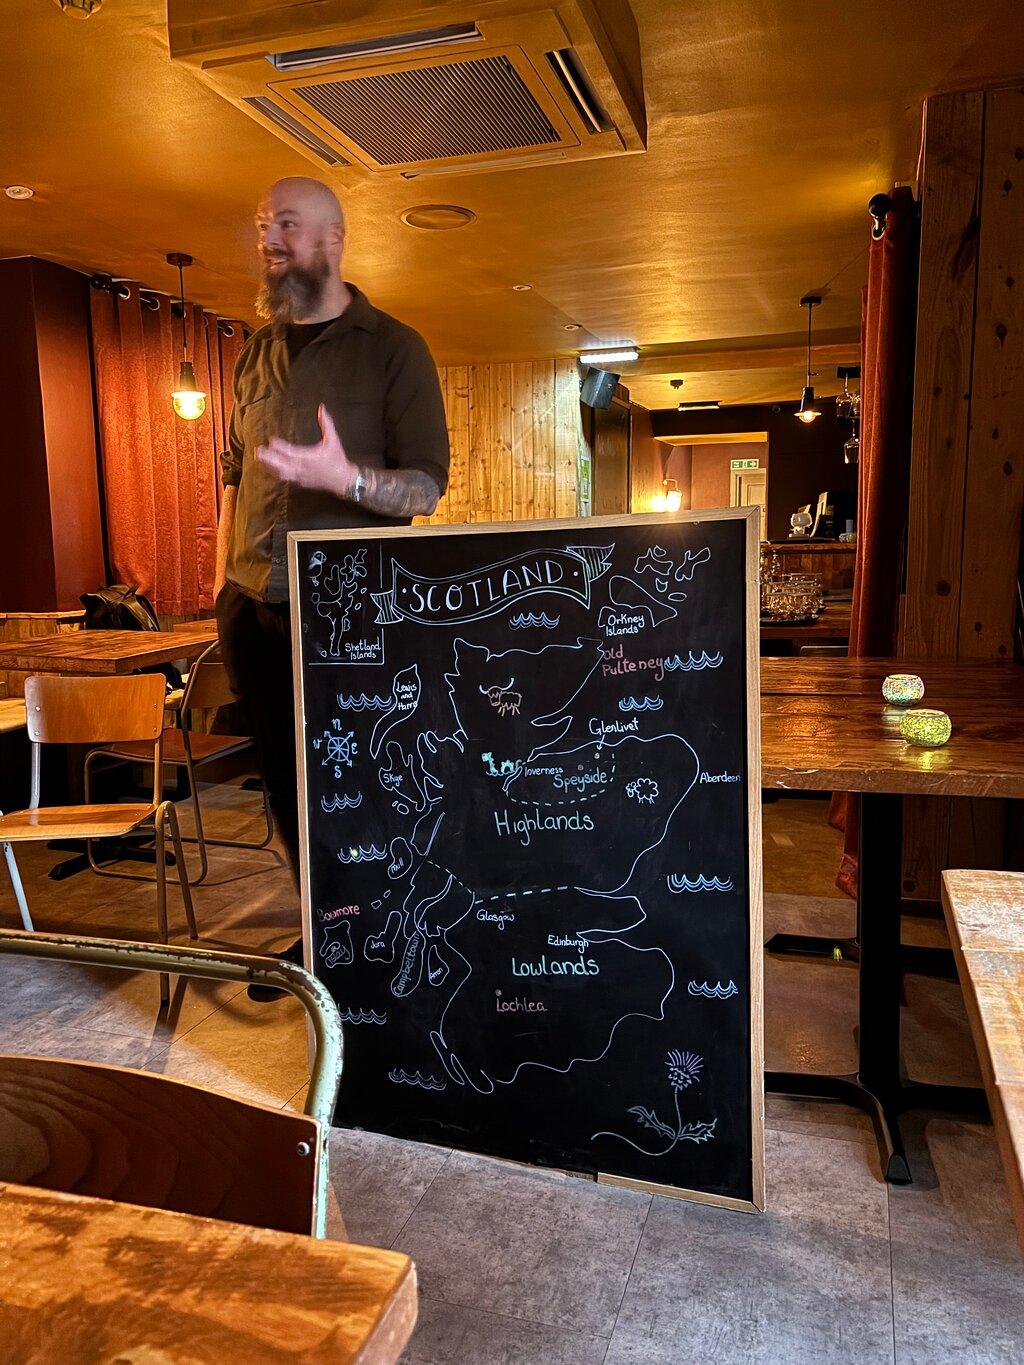 ·SCOTLAND·
Shetland
Islands
Orkney
Islands
old
Pulteney
Lewis
and
Harris
Glenlivet
N
W
E
S
Skye
Inverness
Speyside
Aberdeen
Highlands
Mull
Bowmore
Glasgow
Jura
Edinburgh
Campbeltown
Arran
Lowlands
Lochlea